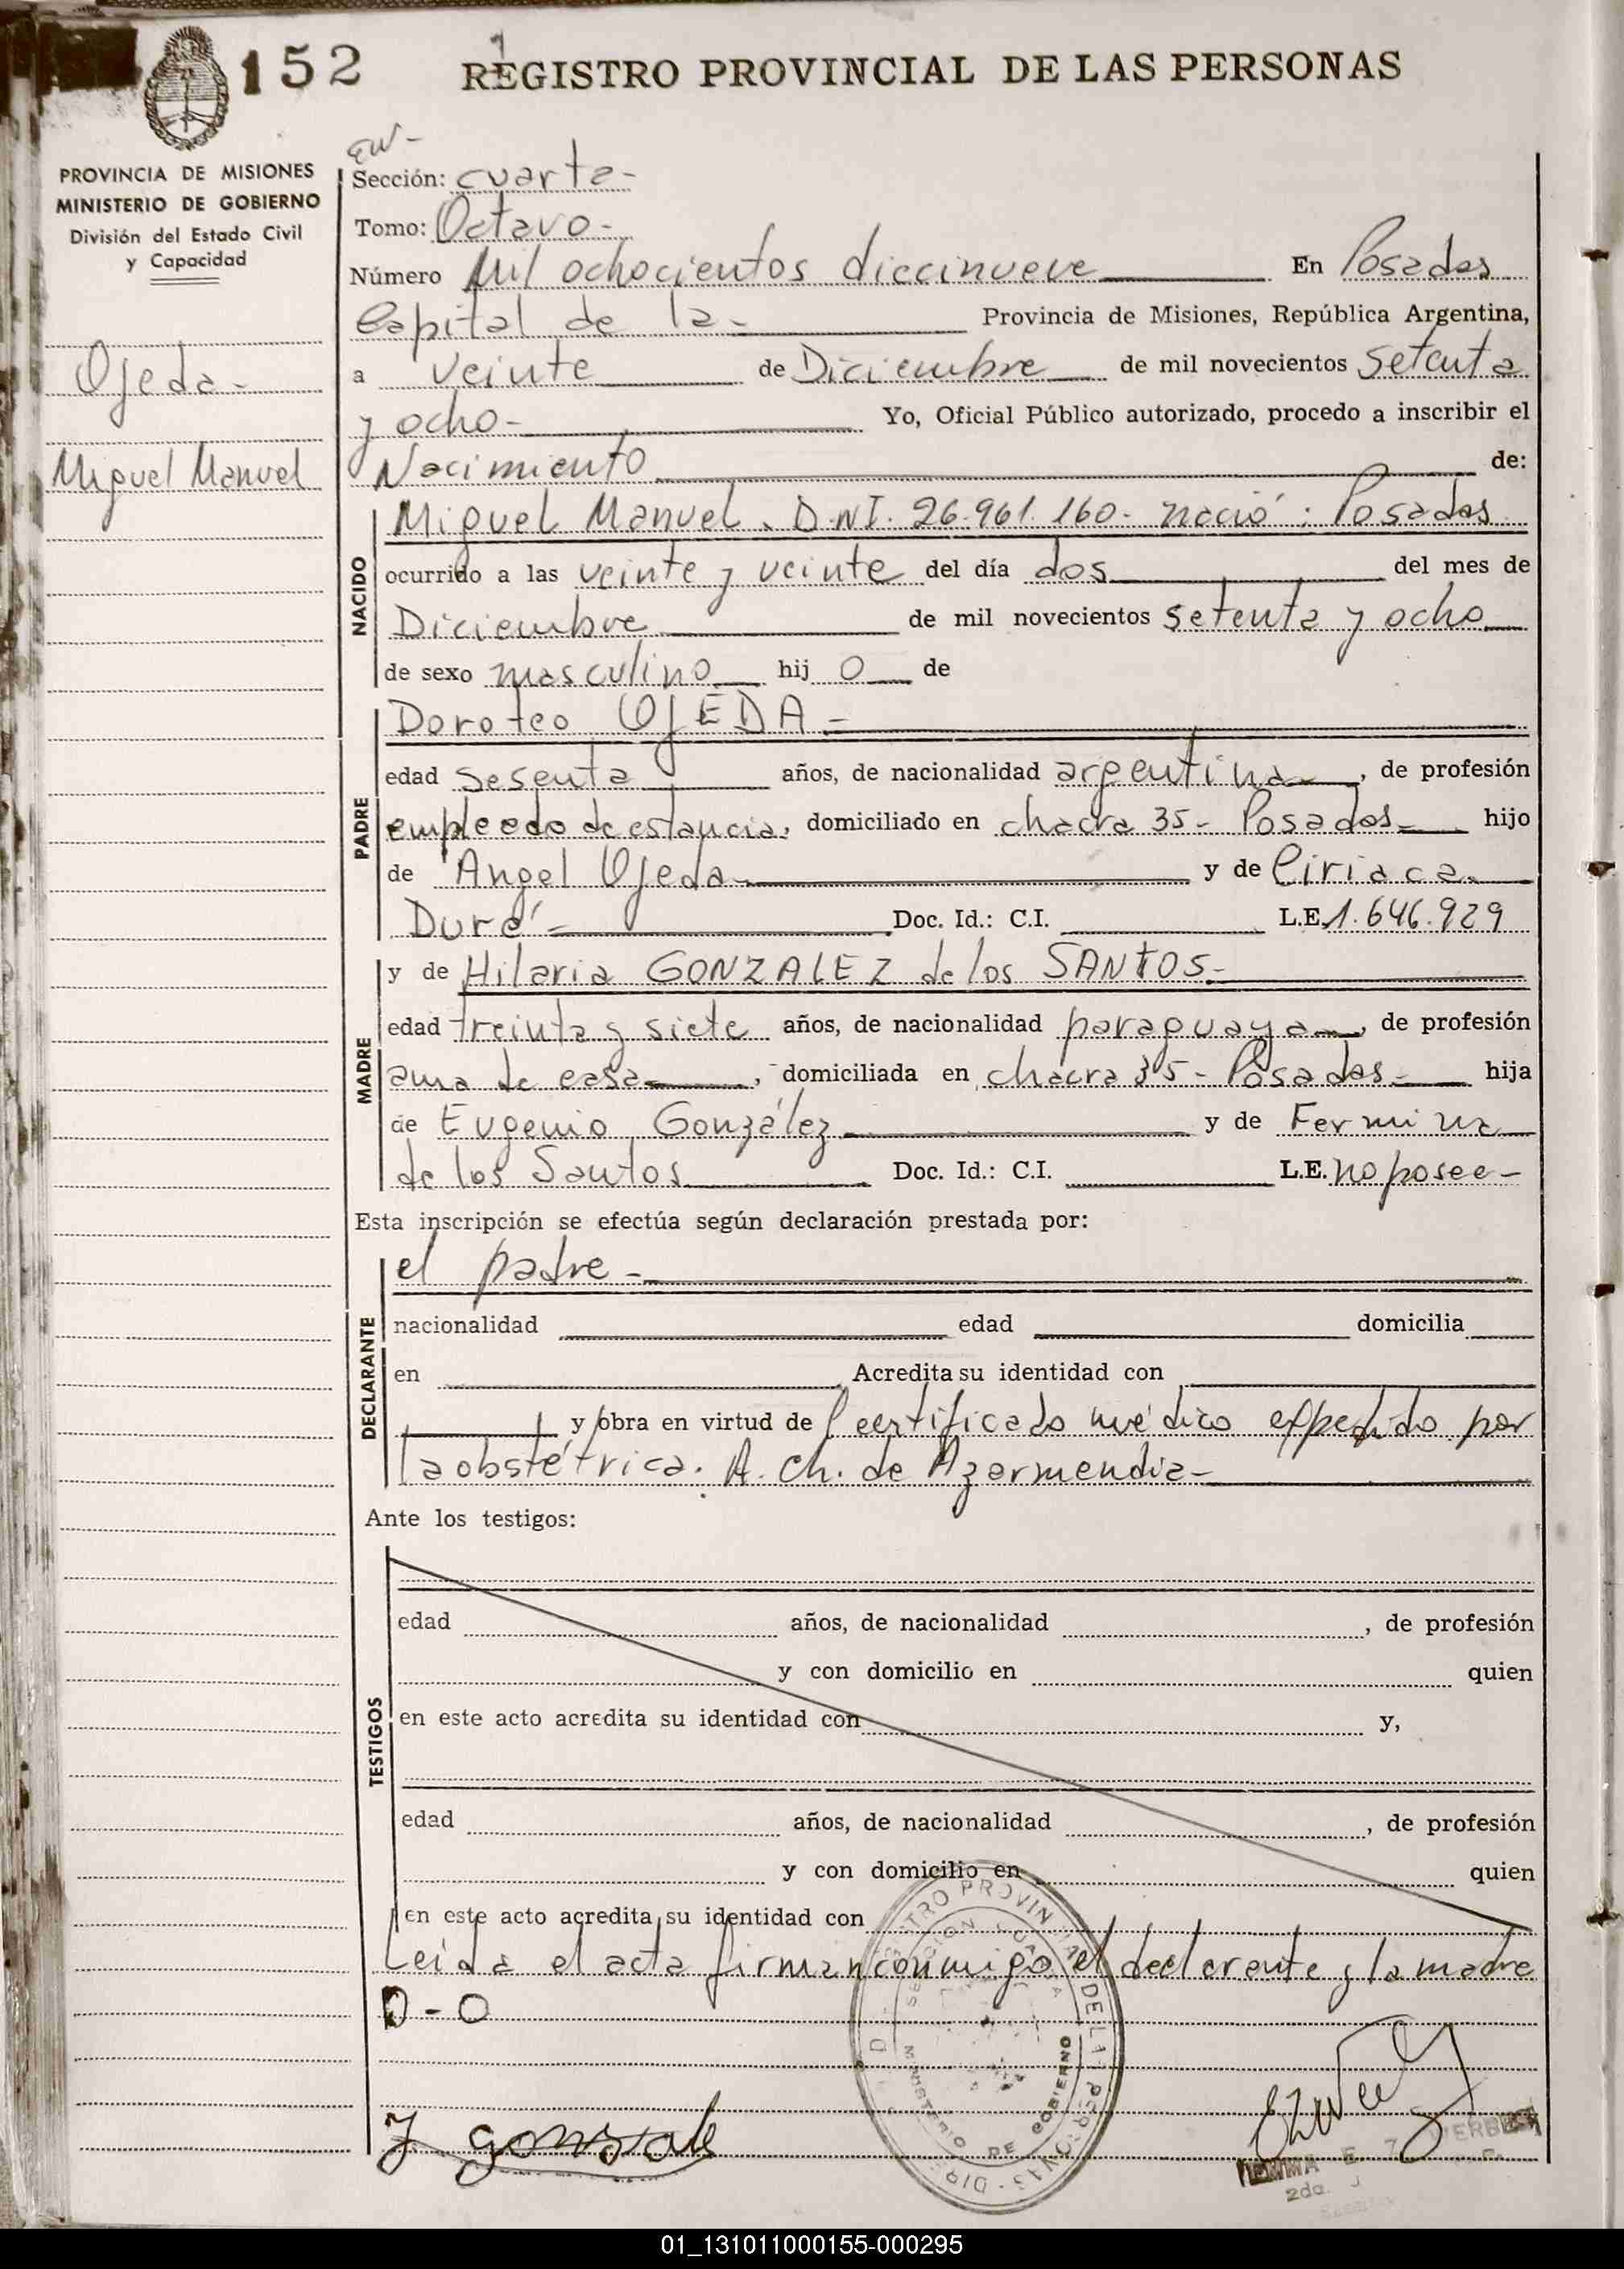 152
REGISTRO PROVINCIAL DE LAS PERSONAS
PROVINCIA DE MISIONES
MINISTERIO DE GOBIERNO
División del Estado Civil
y Capacidad
Ojeda-
Miguel Manuel
Sección: cuarta-
Tomo: Octavo-
Número Mil ochocientos diecinueve En Posadas
Capital de la- Provincia de Misiones, República Argentina,
a veinte de Diciembre de mil novecientos setenta
y ocho- Yo, Oficial Público autorizado, procedo a inscribir el
Nacimiento de:
NACIDO
Miguel Manuel. D.N.I. 26.961.160- nació: Posadas
ocurrido a las veinte y veinte del día dos del mes de
Diciembre de mil novecientos setenta y ocho
de sexo masculino hij o de
PADRE
Doroteo OJEDA-
edad sesenta años, de nacionalidad argentina, de profesión
empleado de estancia, domiciliado en chacra 35- Posadas- hijo
de Angel Ojeda- y de Ciriaca
Duré- Doc. Id.: C.I. L.E. 1.646.929
MADRE
y de Hilaria GONZALEZ de los SANTOS-
edad treinta y siete años, de nacionalidad paraguaya, de profesión
ama de casa, domiciliada en chacra 35- Posadas- hija
de Eugenio González y de Fermina
de los Santos Doc. Id.: C.I. L.E. no posee-
Esta inscripción se efectúa según declaración prestada por:
DECLARANTE
el padre-
nacionalidad edad domicilia
en Acredita su identidad con
y obra en virtud de certificado médico expedido por
la obstétrica. A. Ch. de Azarmendia-
Ante los testigos:
TESTIGOS
edad años, de nacionalidad , de profesión
y con domicilio en quien
en este acto acredita su identidad con y,
edad años, de nacionalidad , de profesión
y con domicilio en quien
en este acto acredita su identidad con
Leida el acta firman conmigo el declarante y la madre
D-O
MINISTERIO DE GOBIERNO
2da.
01_131011000155-000295